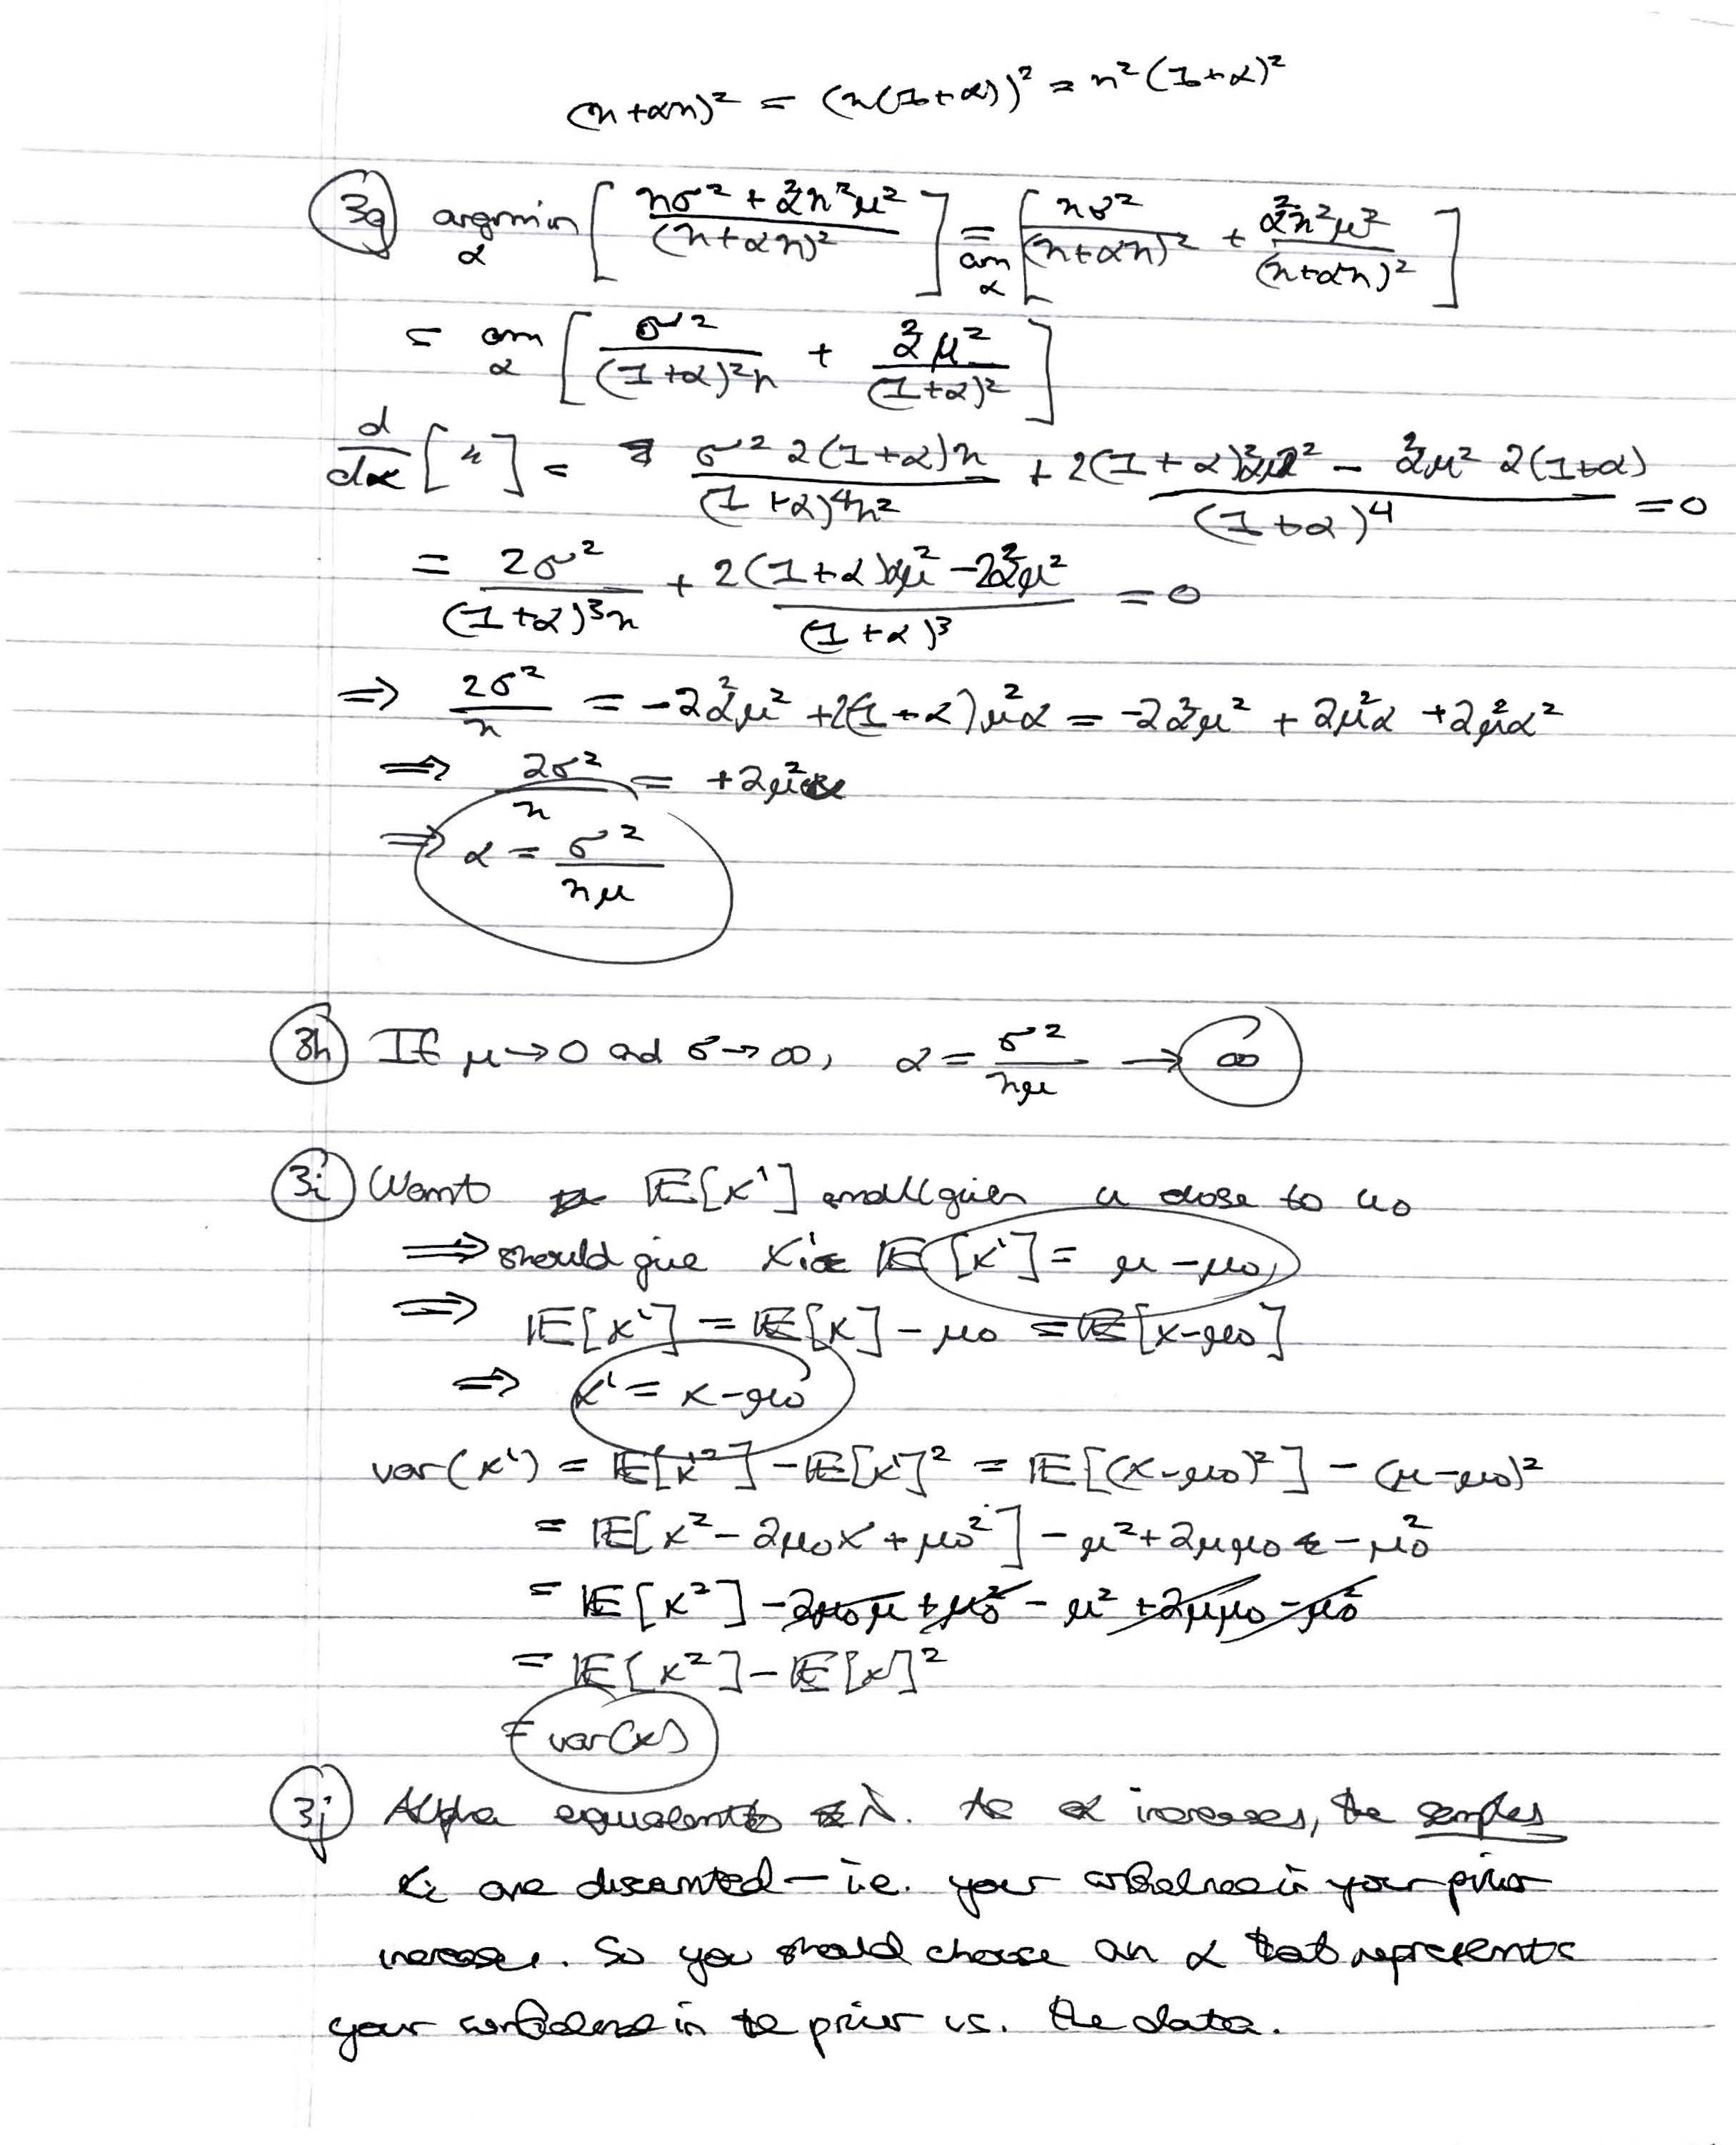 (n+αn)² = (n(1+α))² = n²(1+α)²
3g argmin_α [ (nσ² + α²n²μ²)/(n+αn)² ] = am_α [ nσ²/(n+αn)² + α²n²μ²/(n+αn)² ]
= am_α [ σ²/((1+α)²n) + α²μ²/(1+α)² ]
d/dα [ " ] = σ² 2(1+α)n/((1+α)⁴n²) + (2(1+α)²αμ² - α²μ² 2(1+α))/(1+α)⁴ = 0
= 2σ²/((1+α)³n) + (2(1+α)αμ² - 2α²μ²)/(1+α)³ = 0
⇒ 2σ²/n = -2α²μ² + 2(1+α)μ²α = -2α²μ² + 2μ²α + 2μ²α²
⇒ 2σ²/n = +2μ²α
⇒ α = σ²/(nμ)
3h If μ→0 and σ→∞, α = σ²/(nμ) → ∞
3i Want E[x'] small given u close to u₀
⇒ should give E[x'] = μ - μ₀
⇒ E[x'] = E[x] - μ₀ = E[x-μ₀]
⇒ x' = x-μ₀
var(x') = E[x'²] - E[x']² = E[(x-μ₀)²] - (μ-μ₀)²
= E[x² - 2μ₀x + μ₀²] - μ² + 2μμ₀ - μ₀²
= E[x²] - 2μ₀μ + μ₀² - μ² + 2μμ₀ - μ₀²
= E[x²] - E[x]²
= var(x)
3j Alpha equivalent to λ. As α increases, the samples
xᵢ are discounted - i.e. your confidence in your prior
increases. So you should choose an α that represents
your confidence in the prior vs. the data.